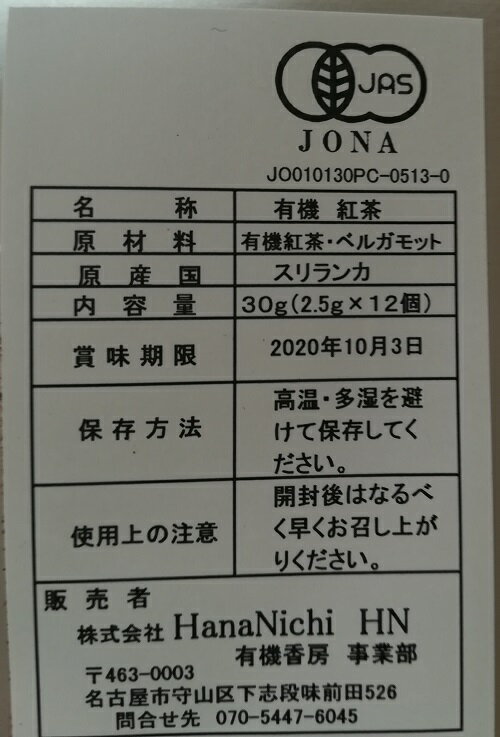 JAS
JONA
JO010130PC-0513-0
名称 有機 紅茶
原材料 有機紅茶・ベルガモット
原産国 スリランカ
内容量 30g(2.5g×12個)
賞味期限 2020年10月3日
保存方法 高温・多湿を避
けて保存してく
ださい。
使用上の注意 開封後はなるべ
く早くお召し上が
りください。
販売者
株式会社 HanaNichi HN
有機香房 事業部
〒463-0003
名古屋市守山区下志段味前田526
問合せ先 070-5447-6045